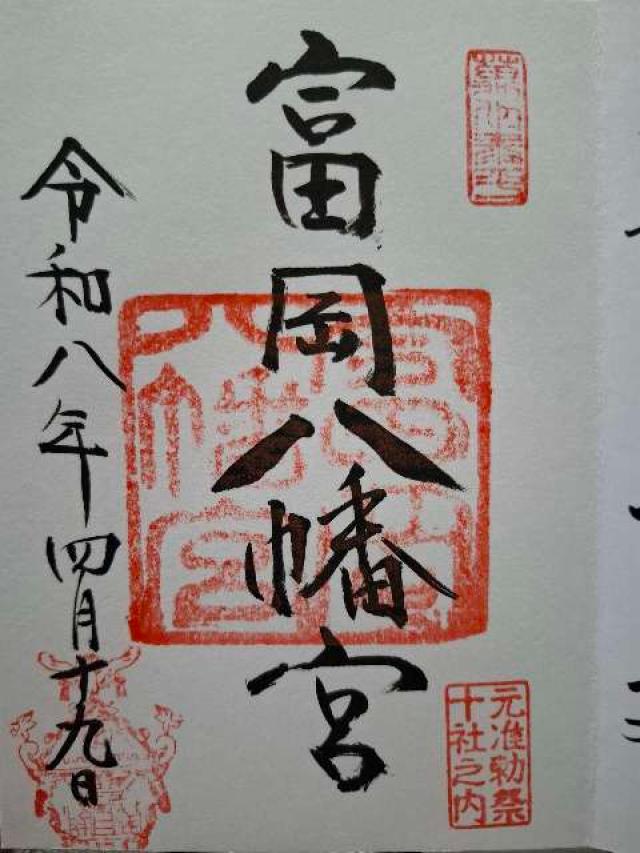 富岡八幡宮
元准勅祭
十社之内
令和八年四月十九日